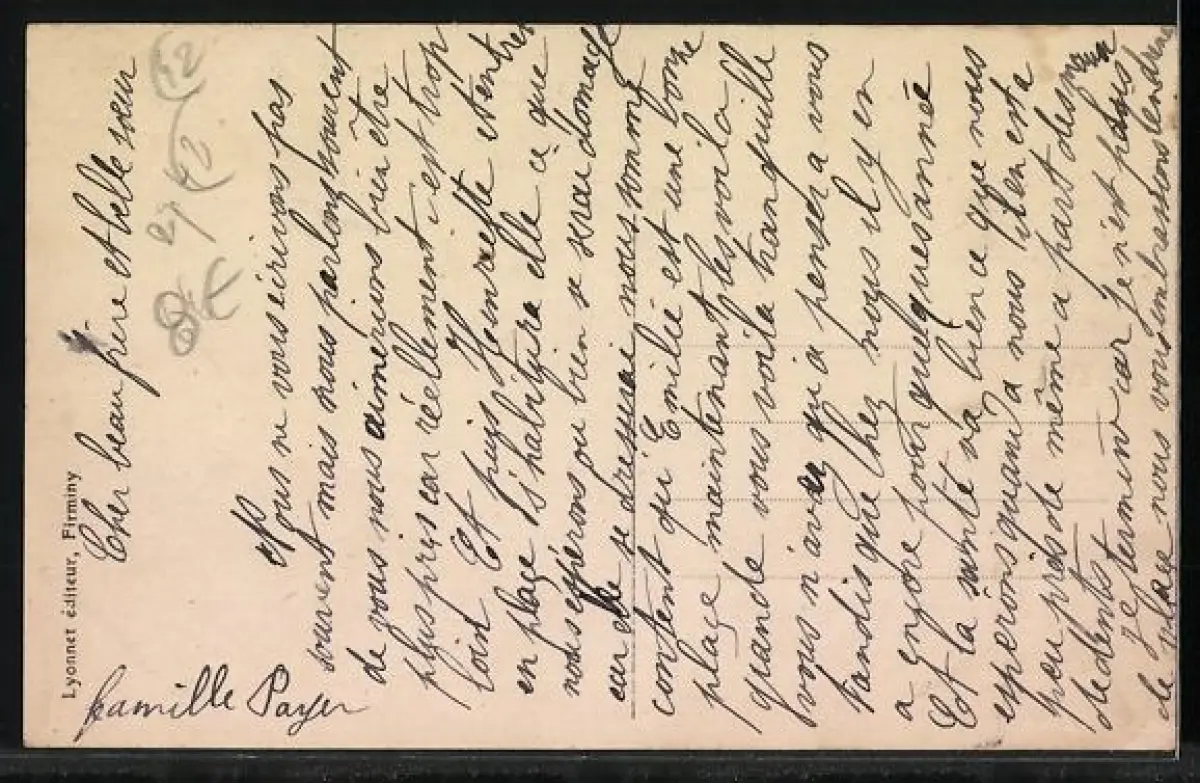 Lyonnet éditeur, Firminy
Cher beau frère et belle sœur
Nous ne vous écrivons pas
souvent mais nous parlons souvent
de vous nous aimerions bien être
plus pres car réellement s est trop
loin Et puis Henriette et entrer
en place s'habitura elle cè que
nous espérons ou bien se srai domage
cur elle se dressrai nous somme
content qu Emilie est une bonne
plaçe maintenant les voila
grande vous voila tranquille
vous n'avez qu a penser a vous
tandis que chez nous il y en
a encore pour quelques année
Et la santé va bien ce que nous
esperons quand a nous il en est a
peu pres de même a part des maux
de dents
Je termine car Je n'est pas
de place nous vous embrassons tendre
famille Payer